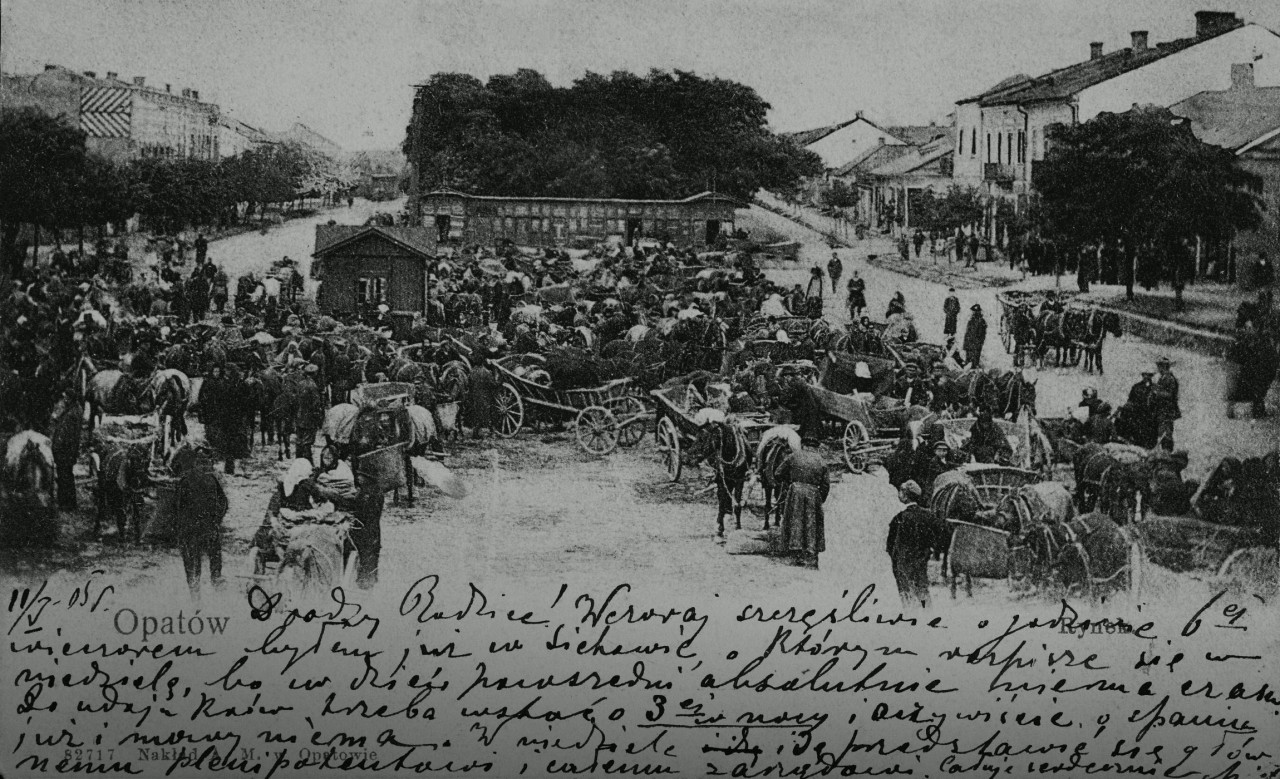 11/V 05 r.
Opatów
Rynek
Drodzy Rodzice! Wczoraj szczęśliwie o godzinie 6ej
wieczorem byłem już w Sichowie, o którym rozpiszę się w
niedzielę, bo w dzień powszedni absolutnie niema czasu
do udoju krów trzeba wstać o 3ej w nocy i oczywiście o spaniu
już i mowy niema. W niedzielę idę przedstawić się głów
nemu plenipotentowi i całemu zarządowi. Całuję serdecznie
82717 Nakład A. M. w Opatowie